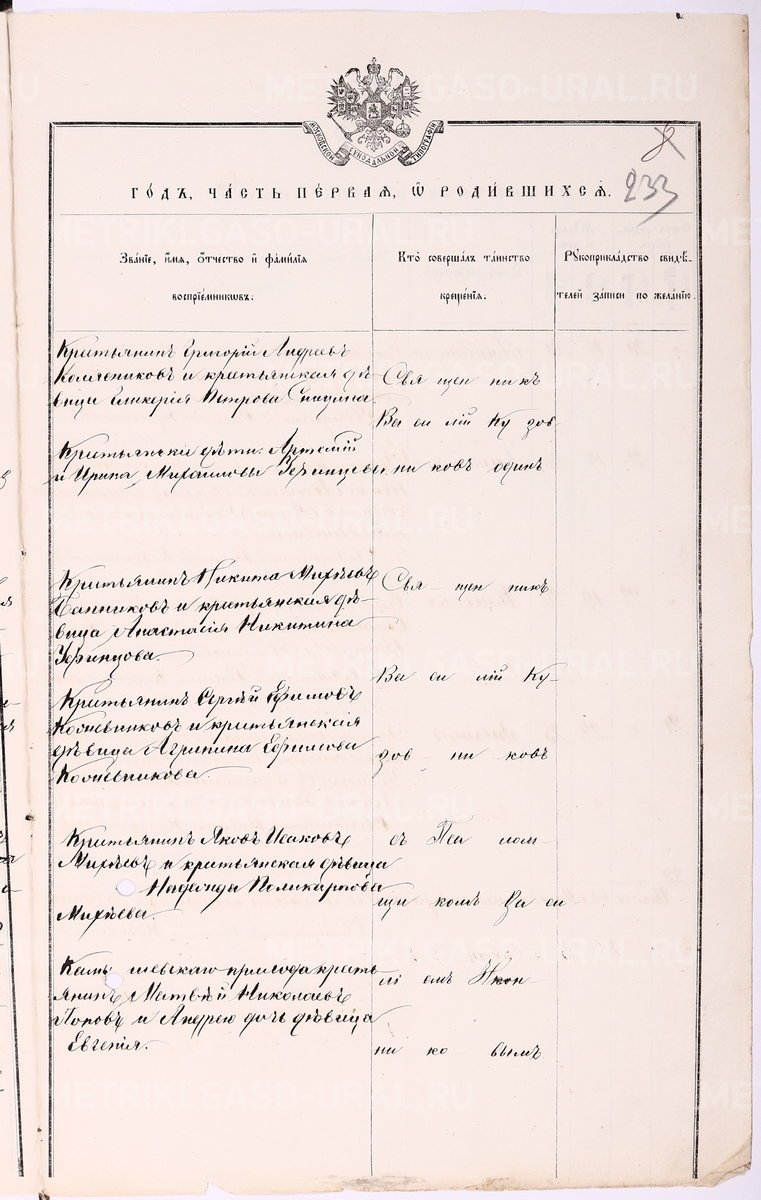 METRIKI.GASO-URAL.RU
МОСКОВСКОЙ СѴНОДАЛЬНОЙ ТИПОГРАФІИ
8
233
ГОДЪ, ЧАСТЬ ПЕРВАЯ, Ѡ РОДИВШИХСЯ.
Званіе, имя, отчество и фамилія
воспріемниковъ.
Кто совершалъ таинство
крещенія.
Рукоприкладство свидѣ-
телей записи по желанію.
Крестьянинъ Григорій Андреевъ
и крестьянская дѣ-
вица Гликерія Петрова
Крестьянскіе дѣти: Артемій
и Ирина Михаиловы
Крестьянинъ Никита Михѣевъ
Банниковъ и крестьянская дѣ-
вица Анастасія Никитина
Крестьянинъ Сергѣй Ефимовъ
Кожевниковъ и крестьянская
дѣвица Агрипина Ефимова
Кожевникова.
Крестьянинъ Яковъ Исаковъ
Михѣевъ и крестьянская дѣвица
Надежда Поликарпова
Михѣева.
прихода кресть-
янинъ Матвѣй Николаевъ
Поповъ и Андрею дочь дѣвица
Евгенія.
Свя щен никъ
Ва си лій Ку зов-
ни ковъ одинъ
Свя щен никъ
Ва си лій Ку-
зов ни ковъ
съ Пса лом-
щи комъ Ва си-
лі емъ Икон-
ни ко вымъ